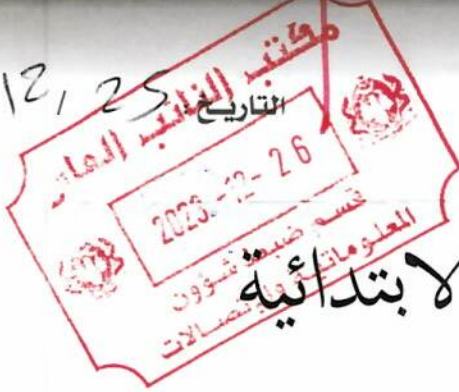 التاريخ: 25 ,12
مكتب النائب العام
2023-12-26
قسم ضبط شؤون
المعلوماتية والاتصالات
لابتدائية